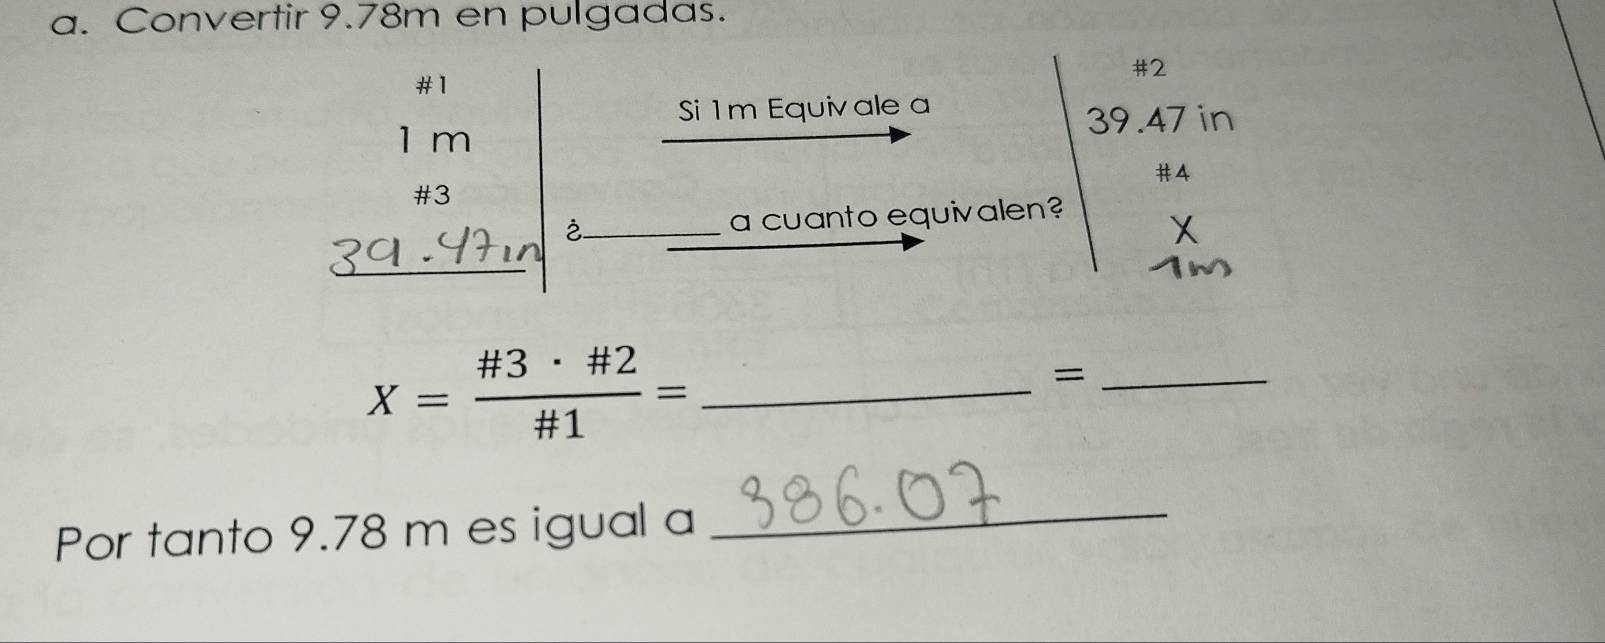 a. Convertir 9.78m en pulgadas.
#1 #2
1 m Si 1m Equivale a 39.47 in
#3 #4
39.47in ¿________ a cuanto equivalen? X
1m
X = #3 · #2 / #1 = ____________ = ______
Por tanto 9.78 m es igual a 386.07